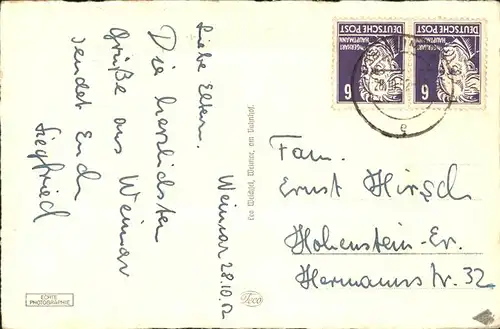 Weimar 28.10.52
Liebe Eltern.
Die herzlichsten
Grüße aus Weimar
sendet Euch
Siegfried
Leo Weichsel, Weimar, am Bahnhof.
Fam.
Ernst Hirsch
Hohenstein-Er.
Hermannstr. 32
DEUTSCHE POST
GERHART
HAUPTMANN
6
DEUTSCHE POST
GERHART
HAUPTMANN
6
28.10.
e
ECHTE
PHOTOGRAPHIE